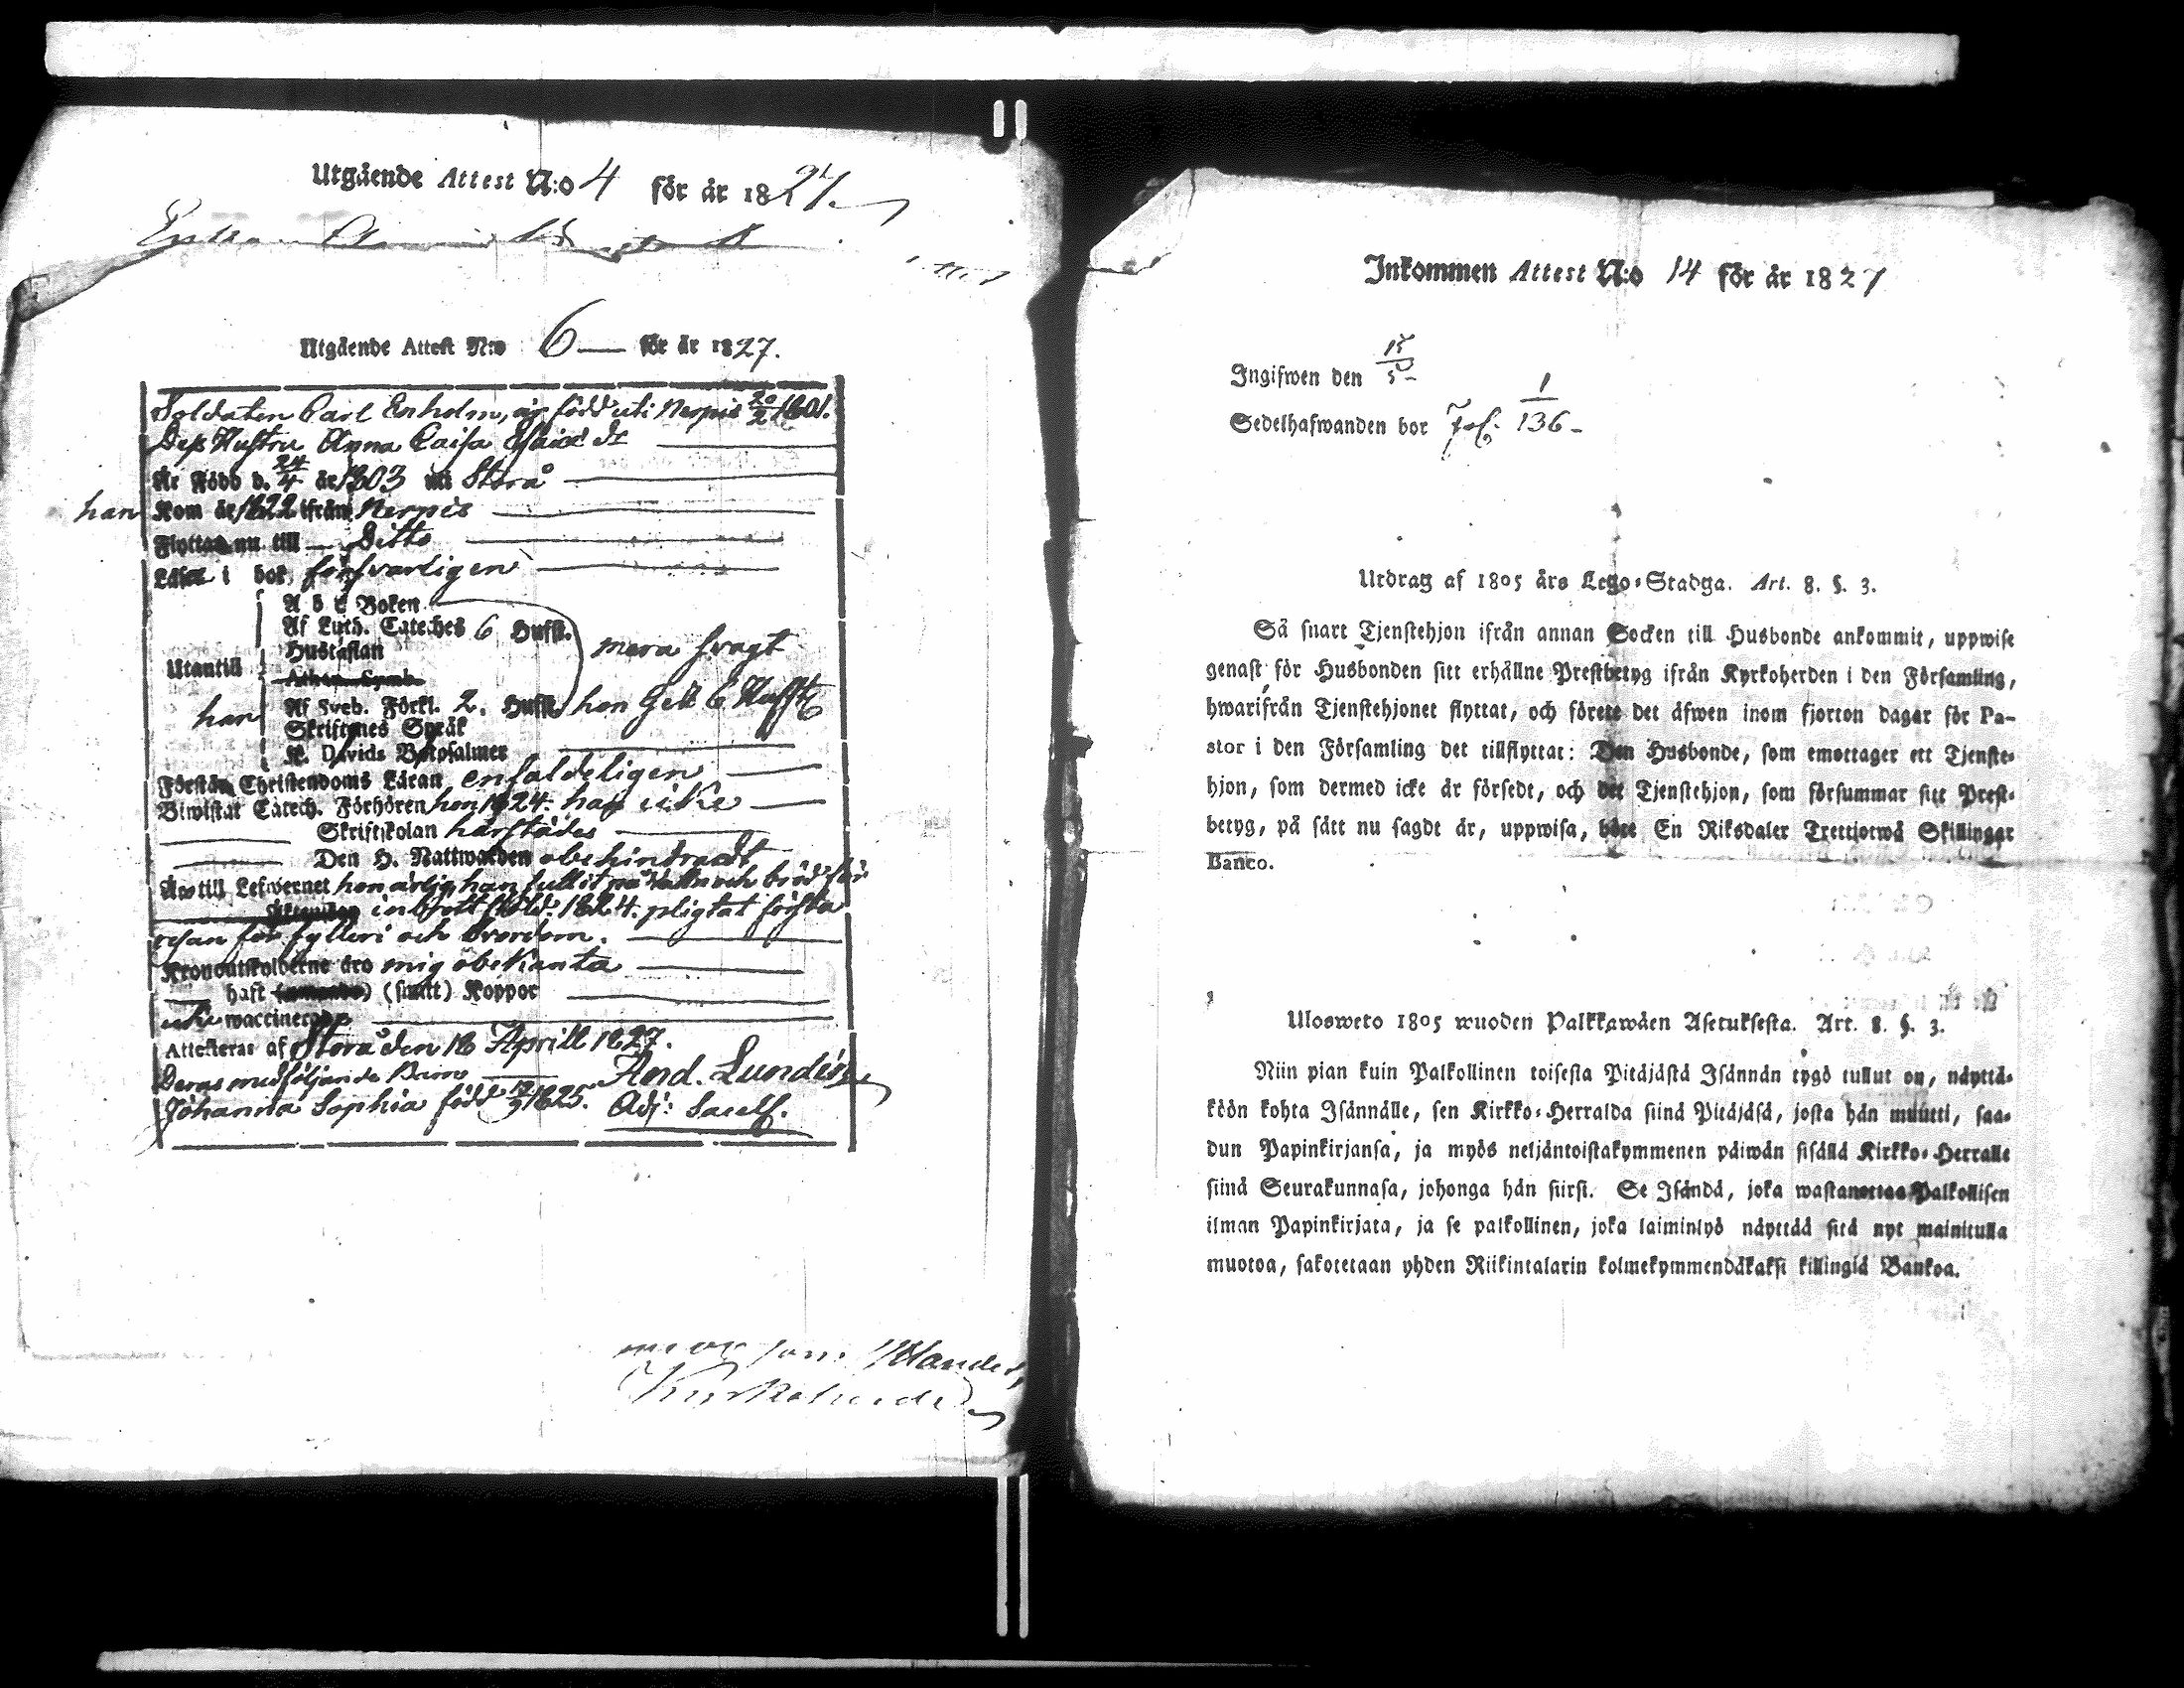 Utgående Attest N:o 4 för år 1827.
Utgående Attest N:o 6 — för år 1827.
Soldaten Carl Enholm, är född uti Nerpis 20/2 1801.
Dess Hustru Anna Caisa
Är Född d. 24/4 år 1803 uti Storå
han Kom år 1822 ifrån Nerpis
Flyttar nu till Ditto
Läser i bok försvarligen
A b c Boken
Af Luth. Cateches 6 Hufst.
Hustaflan mera svagt
Utantill
Athan. Symb.
han Af Sveb. Förkl. 2. Hufst. hon
Skriftenes Språk
K. Davids Botpsalmer
Förstår Christendoms Läran enfaldeligen
Biwistat Catech. Förhören hon 1824. han icke
Skriftskolan härstädes
Den H. Nattwarden obehindradt
Är till Lefwernet hon ärlig, han fullit på watn och bröd för
inbrott 1824. pligtat första
resan för fylleri och svordom.
Kronoutskylderne äro mig obekanta
haft (smitt) Koppor
icke waccinerad
Attesteras af Storå den 18 Aprill 1827.
Deras medföljande Barn And. Lundén
Johanna Sophia född 1825. Adj: Sacell.
Inkommen Attest N:o 14 för år 1827
Ingifwen den 15/5
Sedelhafwanden bor 1/136
Utdrag af 1805 års Lego-Stadga. Art. 8. §. 3.
Så snart Tjenstehjon ifrån annan Socken till Husbonde ankommit, uppwise
genast för Husbonden sitt erhållne Prestbetyg ifrån Kyrkoherden i den Församling,
hwarifrån Tjenstehjonet flyttat, och förete det äfwen inom fjorton dagar för Pa-
stor i den Församling det tillflyttat: Den Husbonde, som emottager ett Tjenste-
hjon, som dermed icke är försedt, och det Tjenstehjon, som försummar sitt Prest-
betyg, på sätt nu sagdt är, uppwisa, böte En Riksdaler Trettiotwå Skillingar
Banco.
Ulosweto 1805 wuoden Palkkawäen Asetuksesta. Art. 8. §. 3.
Niin pian kuin Palkollinen toisesta Pitäjästä Isännän tygö tullut on, näyttä-
köön kohta Isännälle, sen Kirkko-Herralda siinä Pitäjäsä, josta hän muutti, saa-
dun Papinkirjansa, ja myös neljäntoistakymmenen päiwän sisällä Kirkko-Herralle
siinä Seurakunnasa, johonga hän siirsi. Se Isändä, joka wastanottaa Palkollisen
ilman Papinkirjata, ja se palkollinen, joka laiminlyö näyttää sitä nyt mainitulla
muotoa, sakotetaan yhden Riikintalarin kolmekymmendäkaksi killingiä Bankoa.